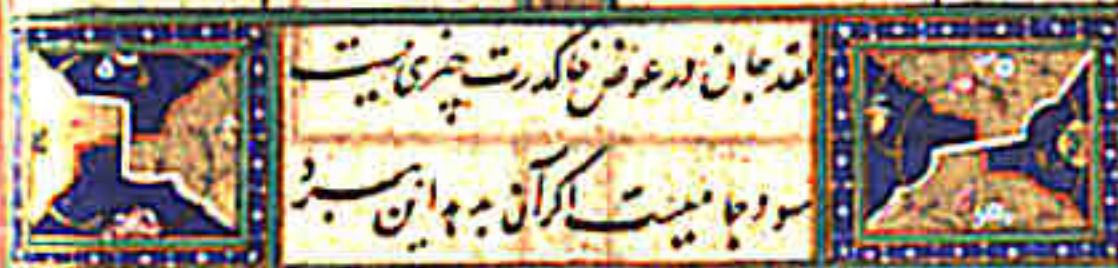 نقد جانی در عوض خاک درت چیزی نیست
سود جانیست اگر آن بدهد این ببرد